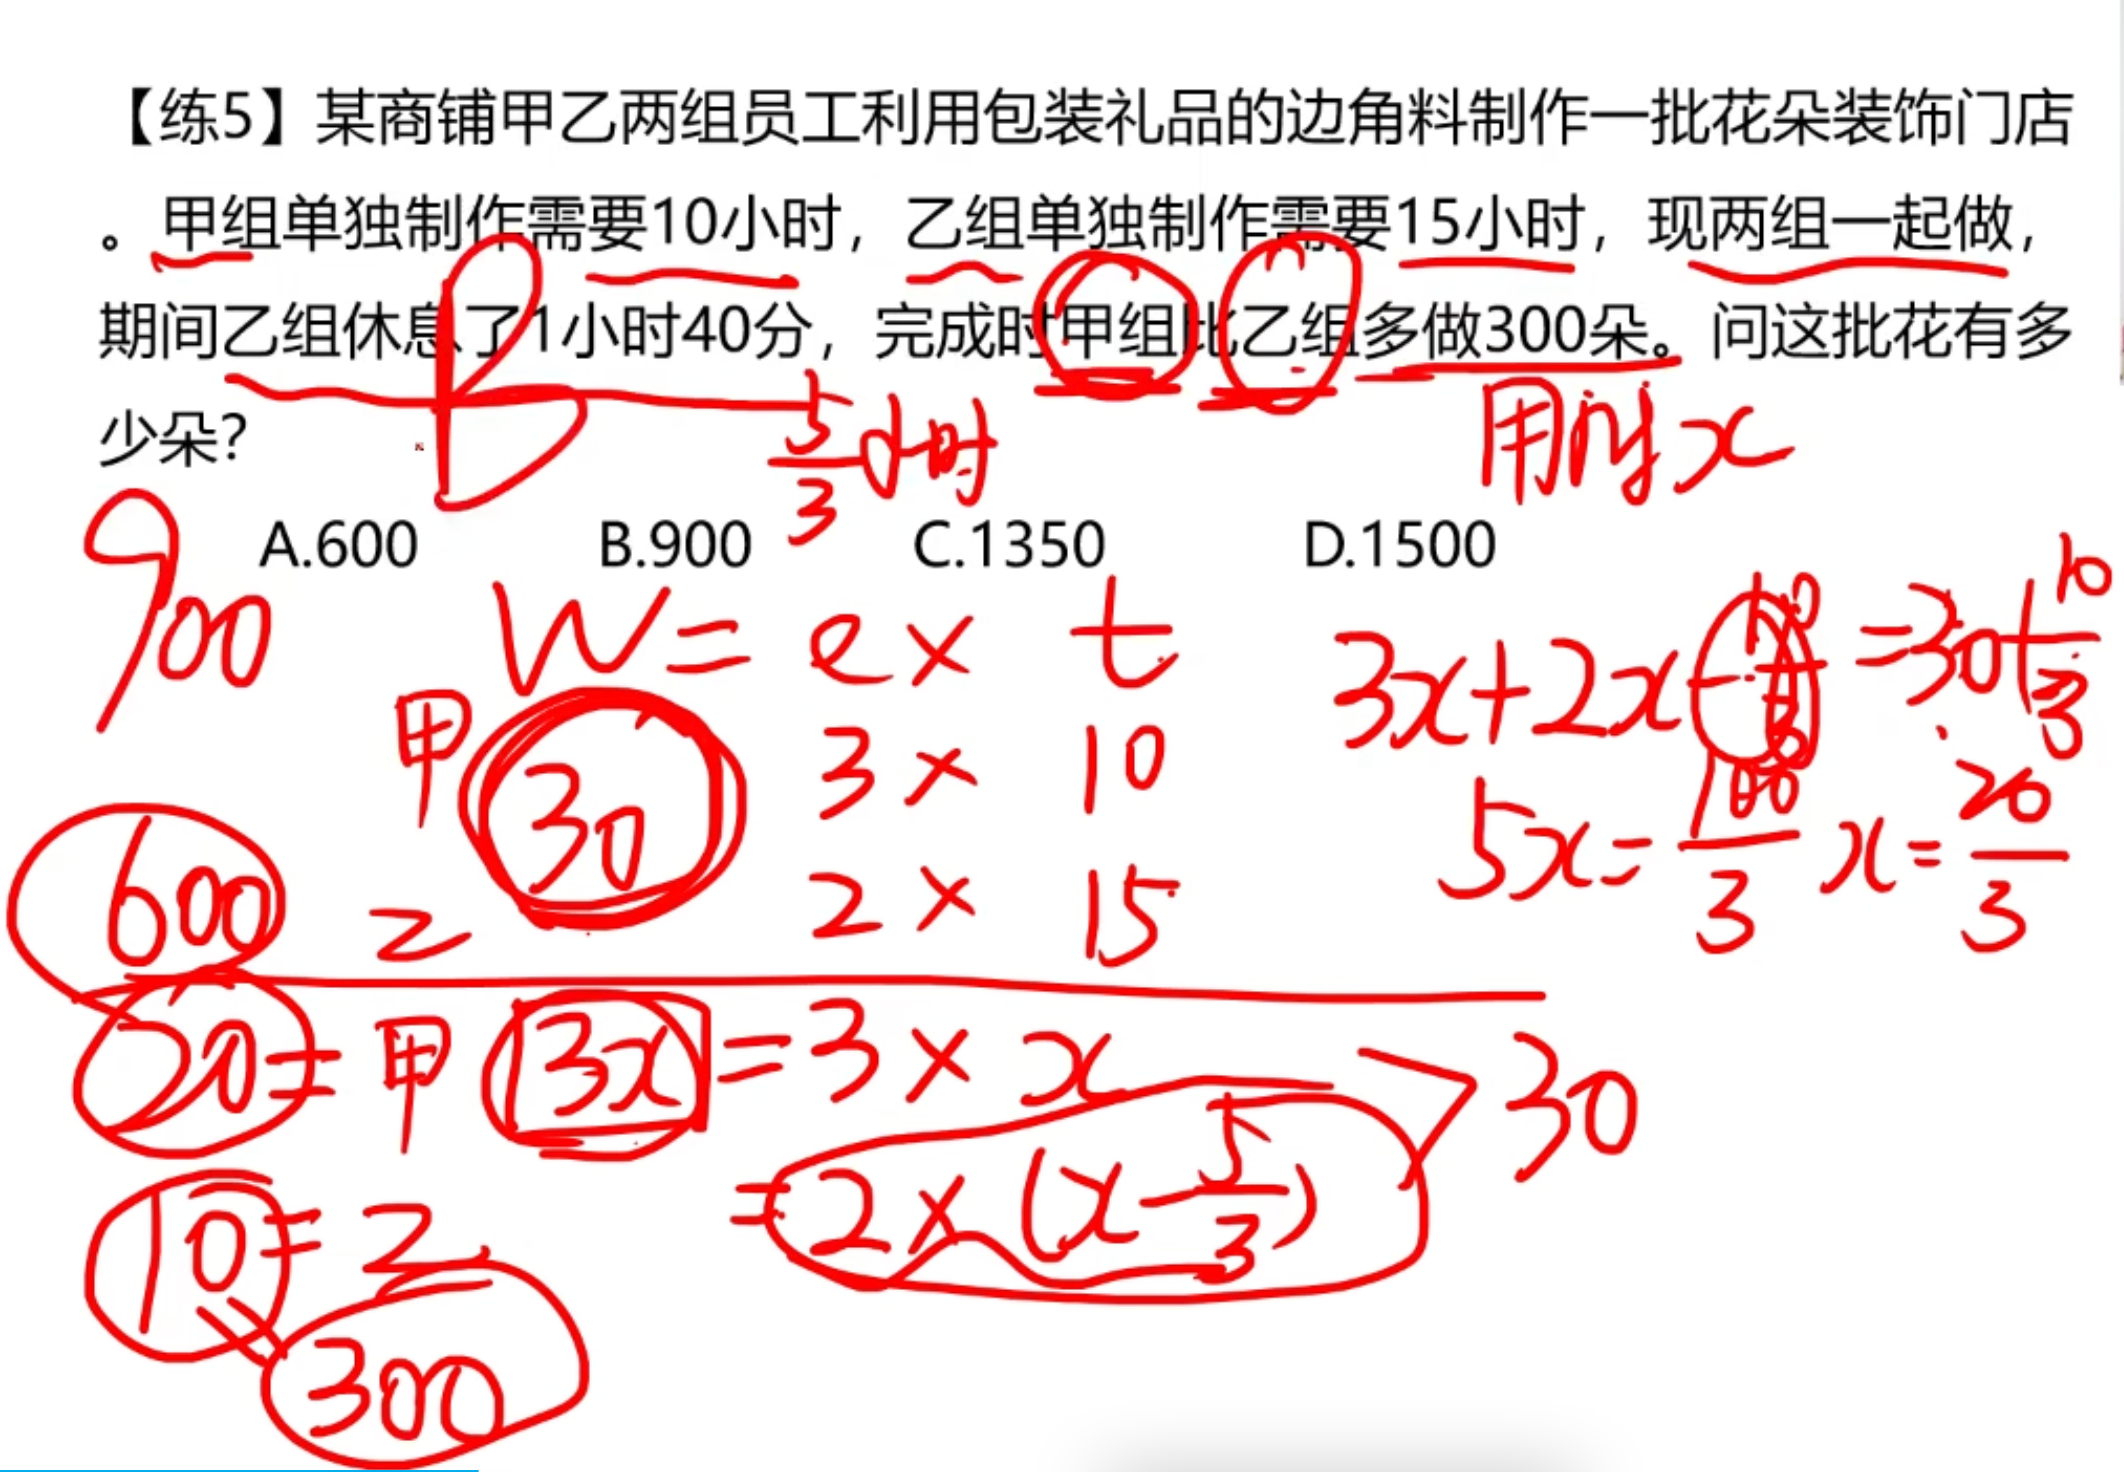 【练5】某商铺甲乙两组员工利用包装礼品的边角料制作一批花朵装饰门店
。甲组单独制作需要10小时，乙组单独制作需要15小时，现两组一起做，
期间乙组休息了1小时40分，完成时甲组比乙组多做300朵。问这批花有多
少朵？
B
5/3小时
用时x
A.600 B.900 C.1350 D.1500
900
W=e×t
甲 30 3×10
乙 2×15
3x+2x-10/3=30+10/3
5x=100/3 x=20/3
600
20=甲 3x=3×x
30
10=乙 =2×(x-5/3)
300